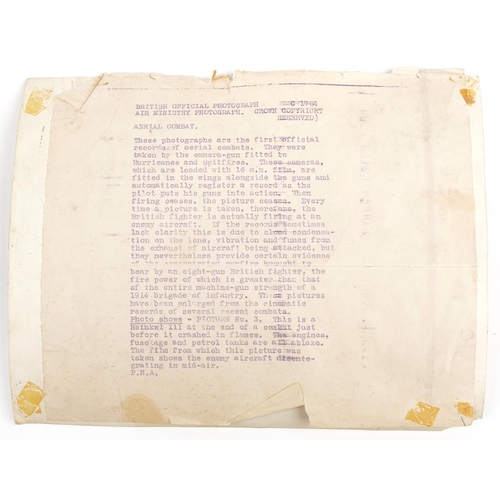 BRITISH OFFICIAL PHOTOGRAPH C 1904
AIR MINISTRY PHOTOGRAPH. CROWN COPYRIGHT
RESERVED)
AERIAL COMBAT.
These photographs are the first official
records of aerial combats. They were
taken by the camera-gun fitted to
Hurricanes and Spitfires. These cameras,
which are loaded with 16 m.m. film, are
fitted in the wings alongside the guns and
automatically register a record as the
pilot puts his guns into action. When
firing ceases, the picture ceases. Every
time a picture is taken, therefore, the
British fighter is actually firing at an
enemy aircraft. If the records sometimes
lack clarity this is due to cloud condensa-
tion on the lens, vibration and fumes from
the exhaust of aircraft being attacked, but
they nevertheless provide certain evidence
of the concentrated gunfire brought to
bear by an eight-gun British fighter, the
fire power of which is greater than that
of the entire machine-gun strength of a
1914 brigade of infantry. These pictures
have been enlarged from the cinematic
records of several recent combats.
Photo shows - PICTURE No. 3. This is a
Heinkel 111 at the end of a combat just
before it crashed in flames. The engines,
fuselage and petrol tanks are all ablaze.
The film from which this picture was
taken shows the enemy aircraft disinte-
grating in mid-air.
P.N.A.